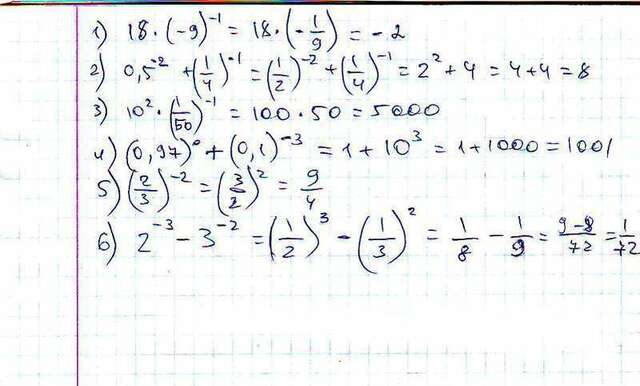 1) 18 · (-9)⁻¹ = 18 · (-1/9) = -2
2) 0,5⁻² + (1/4)⁻¹ = (1/2)⁻² + (1/4)⁻¹ = 2² + 4 = 4 + 4 = 8
3) 10² · (1/50)⁻¹ = 100 · 50 = 5000
4) (0,97)⁰ + (0,1)⁻³ = 1 + 10³ = 1 + 1000 = 1001
5) (2/3)⁻² = (3/2)² = 9/4
6) 2⁻³ - 3⁻² = (1/2)³ - (1/3)² = 1/8 - 1/9 = 9-8/72 = 1/72